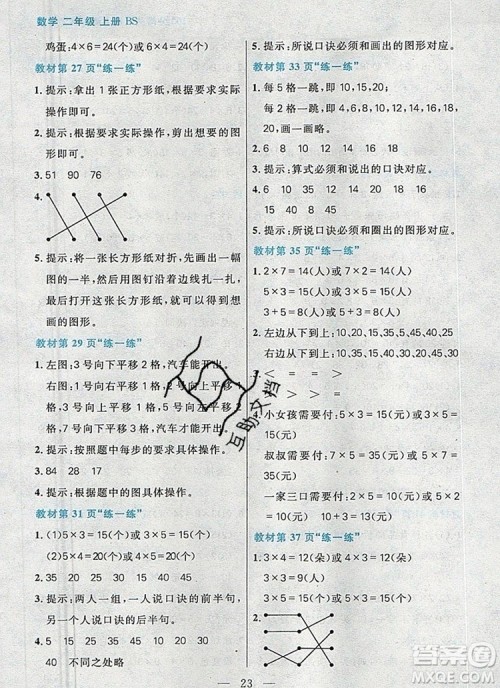 数学 二年级 上册 BS
鸡蛋:4×6=24(个)或6×4=24(个)
教材第27页“练一练”
1. 提示:拿出1张正方形纸,根据要求实际
操作即可。
2. 提示:根据要求实际操作,剪出想要的图
形即可。
3. 51 90 76
4.
5. 提示:将一张长方形纸对折,先画出这幅
图的一半,然后用图钉沿着边线扎一扎,
最后打开这张长方形纸,就可以得到想
画的图形。
教材第29页“练一练”
1. 左图:3号向下平移2格,汽车能开出。
右图:1号向右平移1格,4号向上平移1
格,3号向上平移1格,2号向左平移1
格,5号向下平移4格,汽车才能开出。
2. 提示:按照题中每步的要求具体操作。
3. 84 28 17
4. 提示:根据题中的图具体操作。
教材第31页“练一练”
1. (1)5×3=15(个)或3×5=15(个)
(2)5×4=20(个)或4×5=20(个)
2. 35 20 15 25 45 40
3. 提示:两人一组,一人说口诀的前半句,
另一人说口诀的后半句。
4. 5 10 15 20 25 30 35
40 不同之处略
5. 提示:所说口诀必须和画出的图形对应。
教材第33页“练一练”
1. 每5格一跳,即10,15,20;
每2格一跳,即4,6,8,10,12,14,16,18,
20,画一画略。
2. 6 8 10 12 14 16 18
3. 提示:算式必须和说出的口诀对应。
4. 6 10 14 18 35 16 40
15 40 8 45
5. 提示:所说口诀必须和圈出的图形对应。
教材第35页“练一练”
1. 2×7=14(人)或7×2=14(人)
5×3=15(人)或3×5=15(人)
2. 左边从下到上:10,20,15,20,45,40,45
右边从下到上:10,15,35,35,40,25,30
3. < = > >
= > > <
4. 小女孩需要付:5×3=15(元)或3×5
=15(元)
叔叔需要付:5×5=25(元)
一家三口需要付:2×5=10(元)
10+3=13(元)
教材第37页“练一练”
1. 3×4=12(朵)或4×3=12(朵)
3×3=9(朵)
5×3=15(朵)或3×5=15(朵)
2.
23
互助文档
作业答案
MXQE.COM